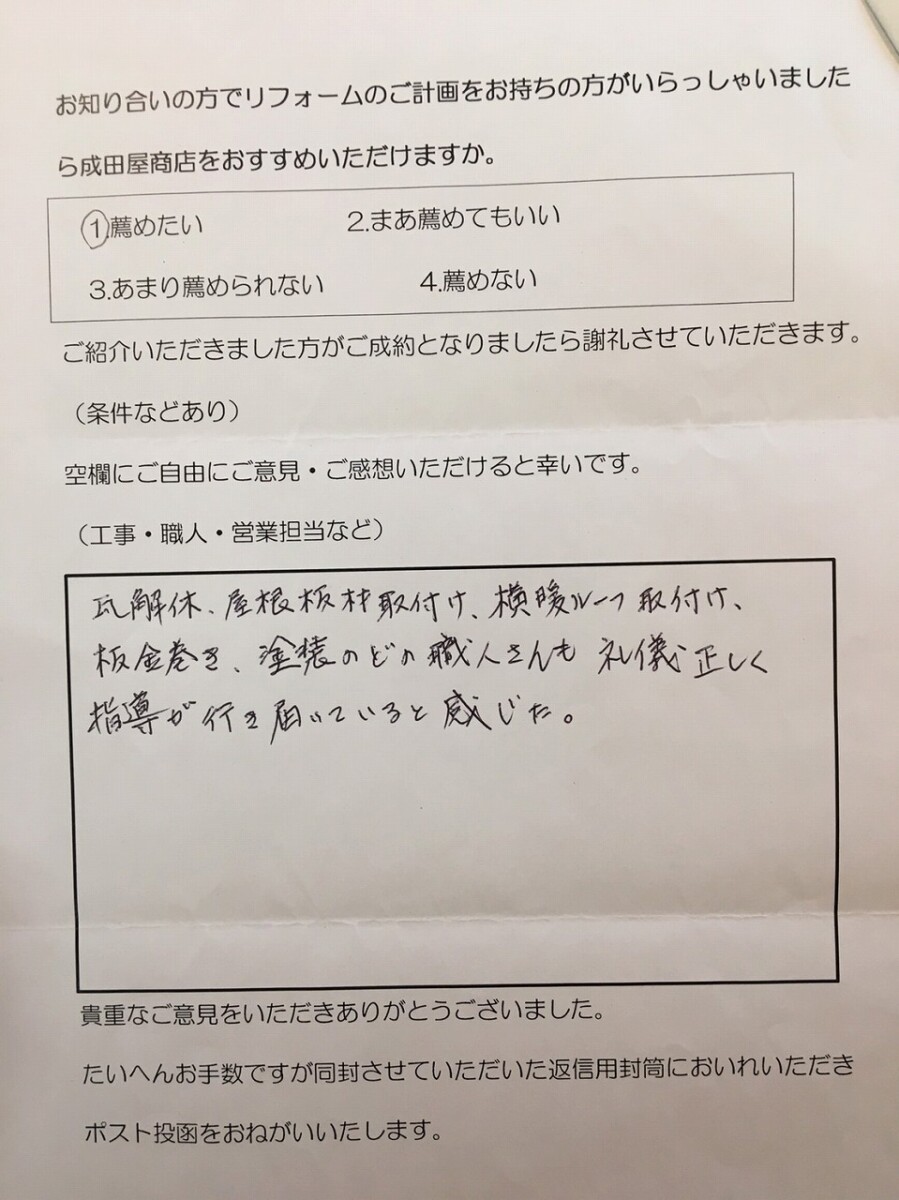 お知り合いの方でリフォームのご計画をお持ちの方がいらっしゃいました
ら成田屋商店をおすすめいただけますか。
1.薦めたい 2.まあ薦めてもいい
3.あまり薦められない 4.薦めない
ご紹介いただきました方がご成約となりましたら謝礼させていただきます。
（条件などあり）
空欄にご自由にご意見・ご感想いただけると幸いです。
（工事・職人・営業担当など）
瓦解体、屋根板材取付け、横暖ルーフ取付け、
板金巻き、塗装のどの職人さんも礼儀正しく
指導が行き届いていると感じた。
貴重なご意見をいただきありがとうございました。
たいへんお手数ですが同封させていただいた返信用封筒においれいただき
ポスト投函をおねがいいたします。